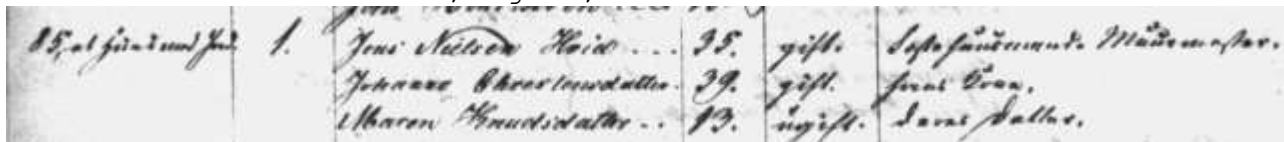 85, et Huus med Jord 1. Jens Nielsen Hvid ... 35. gift. Huusmand. Muurmester.
Johanne Christensdatter. 39. gift. hans Kone.
Maren Knudsdatter .. 13. ugift. deres Datter.